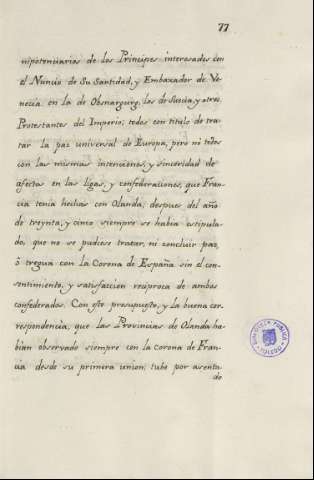 77
nipotenciarios de los Principes interesados con
el Nuncio de Su Santidad, y Embaxador de Ve-
necia en la de Obsnarguirg, los de Suecia, y otros
Protestantes del Imperio; todos con titulo de tra-
tar la paz universal de Europa, pero ni todos
con las mismas intenciones, y sinceridad de
afecto en las ligas, y confederaciones, que Fran-
cia tenia hechas con Olanda, despues del año
de treynta, y cinco siempre se habia estipula-
do, que no se pudiese tratar, ni concluir paz,
ô tregua con la Corona de España sin el con-
sentimiento, y satisfaccion reciproca de ambos
confederados. Con este presupuesto, y la buena cor-
respondencia, que las Provincias de Olanda ha-
bian observado siempre con la Corona de Fran-
cia desde su primera union; tubo por asenta-
do
BIBLIOTECA PUBLICA
TOLEDO